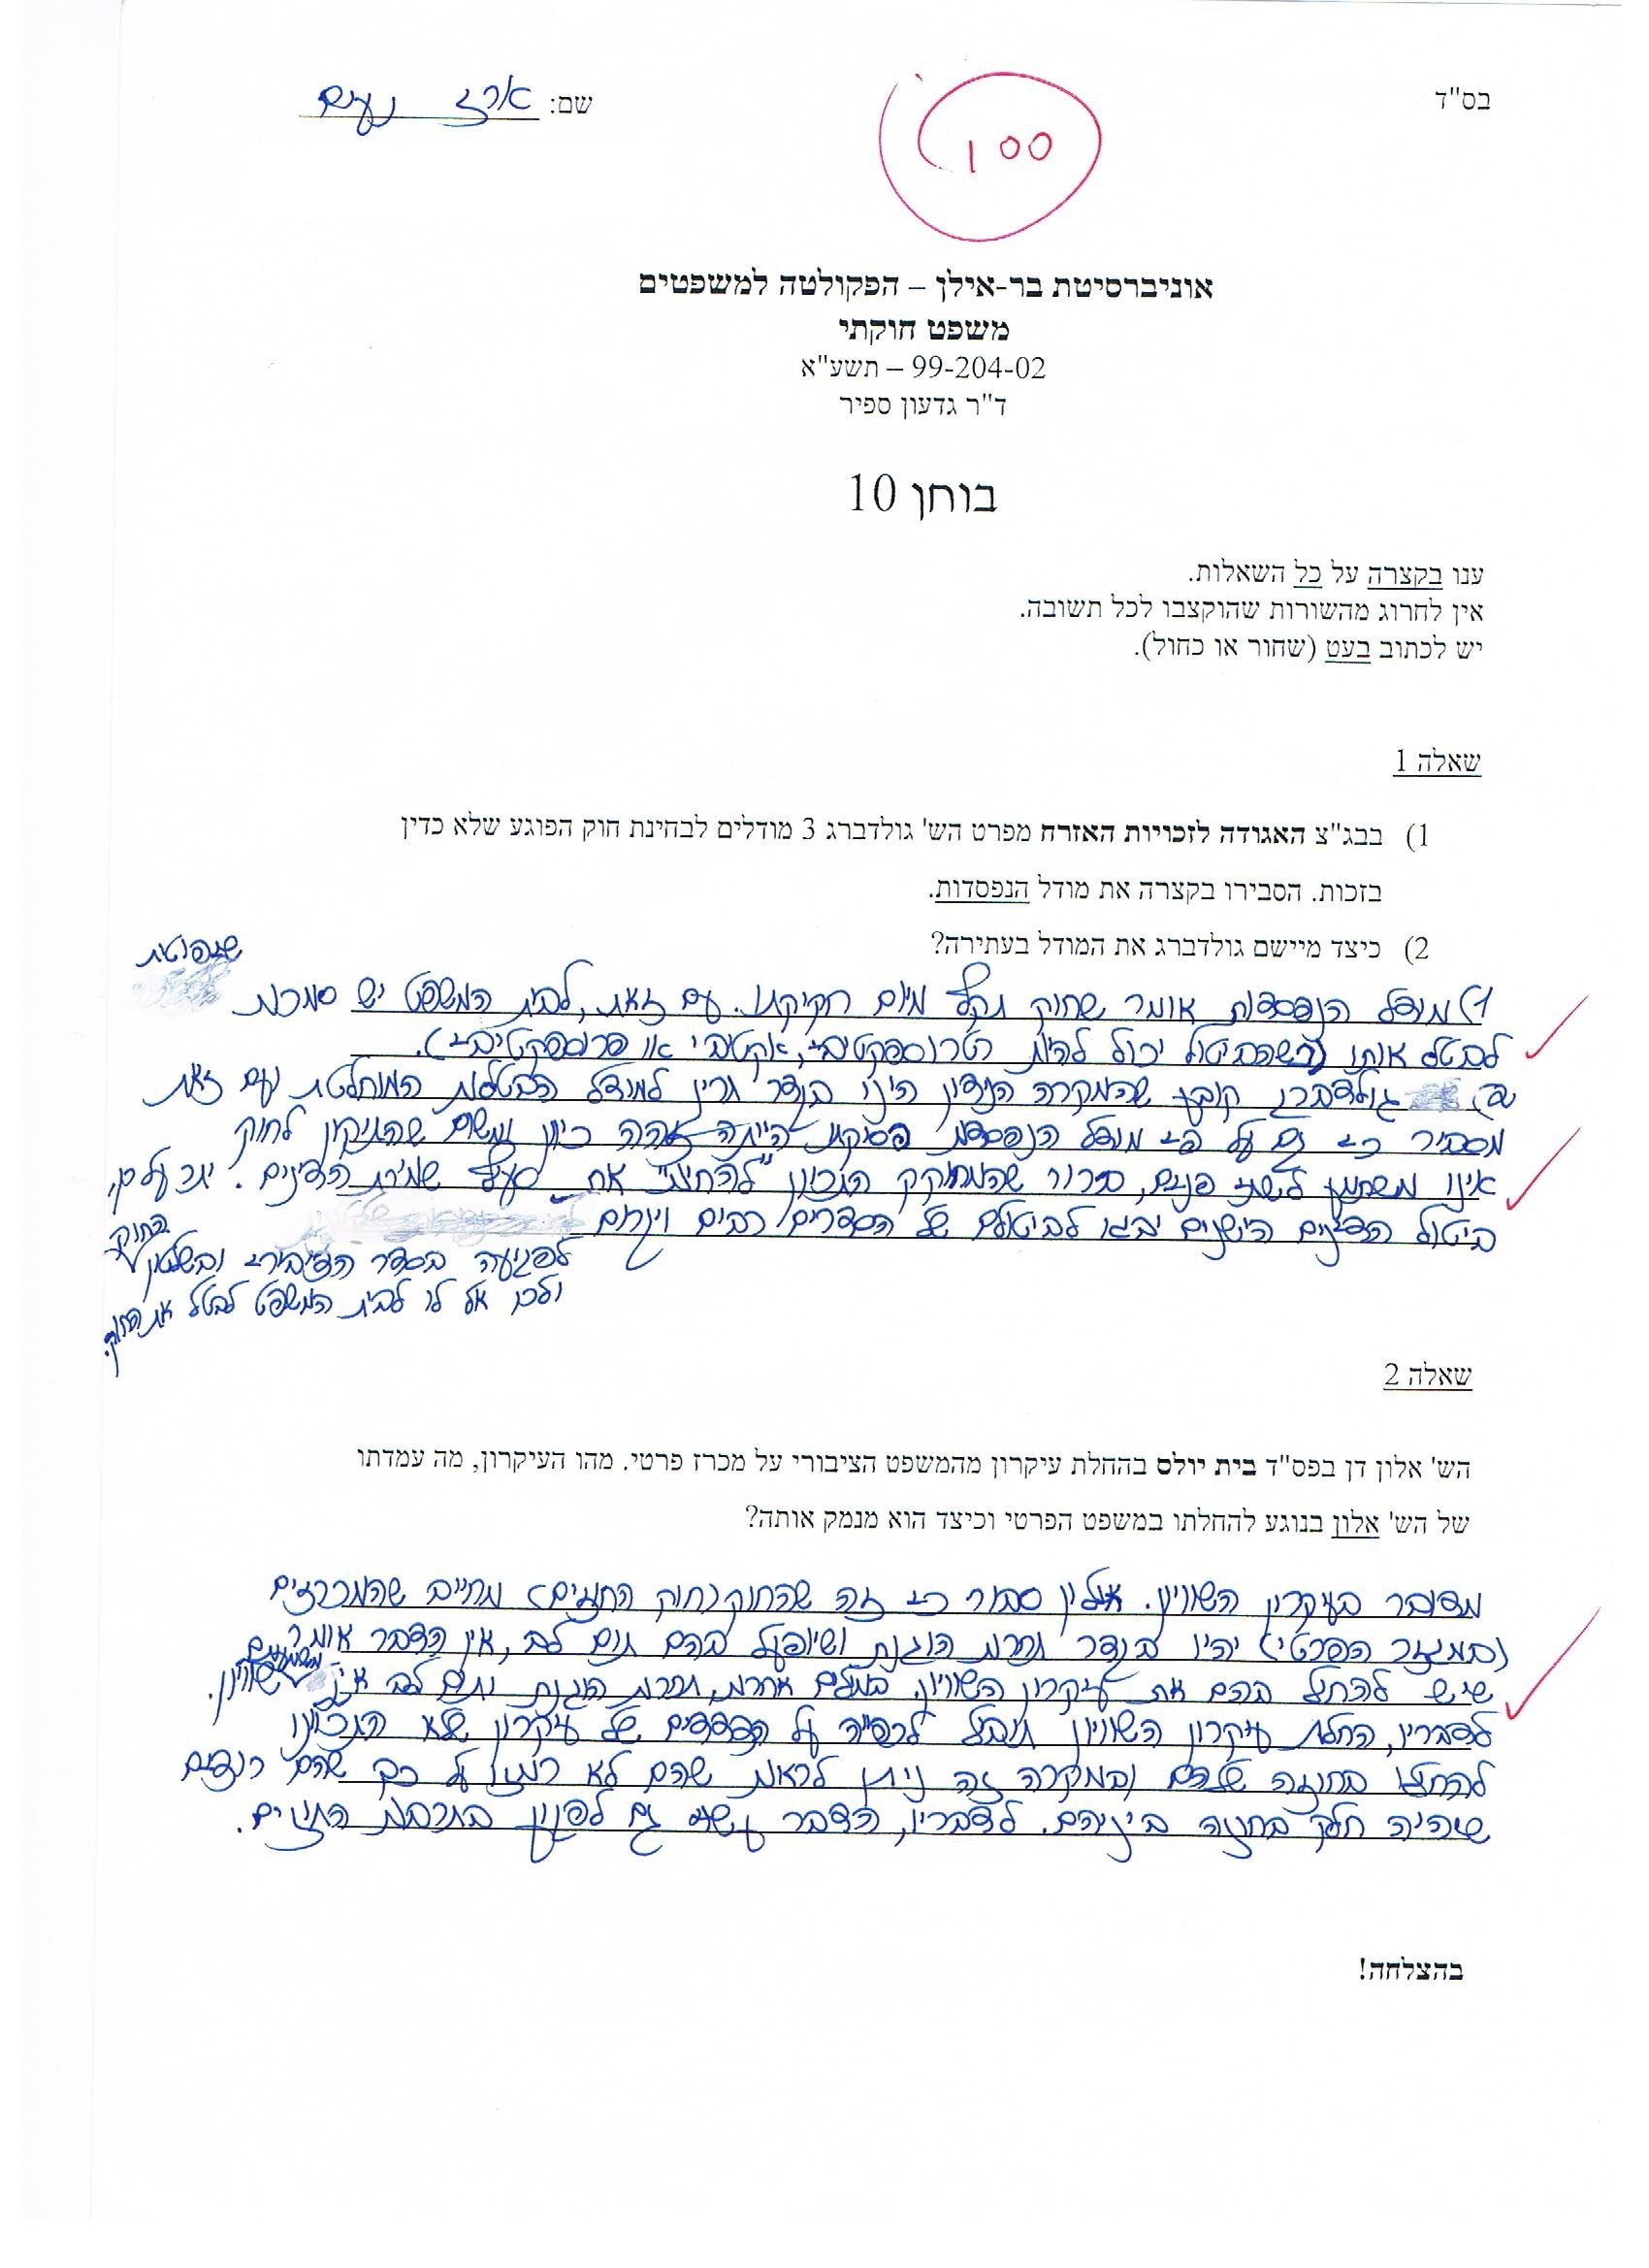 בס"ד
100
שם: ארז נעים
אוניברסיטת בר-אילן – הפקולטה למשפטים
משפט חוקתי
99-204-02 – תשע"א
ד"ר גדעון ספיר
בוחן 10
ענו בקצרה על כל השאלות.
אין לחרוג מהשורות שהוקצבו לכל תשובה.
יש לכתוב בעט (שחור או כחול).
שאלה 1
1) בבג"צ האגודה לזכויות האזרח מפרט הש' גולדברג 3 מודלים לבחינת חוק הפוגע שלא כדין
בזכות. הסבירו בקצרה את מודל הנפסדות.
2) כיצד מיישם גולדברג את המודל בעתירה?
1) מודל הנפסדות אומר שחוק תקף מיום חקיקתו. עם זאת, לבית המשפט יש סמכות שיפוטית
לבטל אותו (כשהביטול יכול להיות רטרוספקטיבי, אקטיבי או פרוספקטיבי).
2) גולדברג קובע שהמקרה הנידון הינו בגדר חריג למודל הבטלות המוחלטת ועם זאת
מסביר כי גם על פי מודל הנפסדות פסיקתו הייתה זהה כיוון ומשום שהתיקון לחוק
אינו משתמע לשתי פנים, ברור שהמחוקק התכוון "להחיות" את סעיף שמירת הדינים. יתר על כן,
ביטול הדינים הישנים יביא לביטולם של הסדרים רבים ויגרום
לפגיעה בסדר הציבורי ובשלטון החוק
ולכן אל לו לבית המשפט לבטל את החוק.
שאלה 2
הש' אלון דן בפס"ד בית יולס בהחלת עיקרון מהמשפט הציבורי על מכרז פרטי. מהו העיקרון, מה עמדתו
של הש' אלון בנוגע להחלתו במשפט הפרטי וכיצד הוא מנמק אותה?
מדובר בעקרון השוויון. אלון סבור כי זה שהחוק (חוק החוזים) מחייב שהמכרזים
(במגזר הפרטי) יהיו בגדר תחרות הוגנת ושיופעל בהם תום לב, אין הדבר אומר
שיש להחיל בהם את עיקרון השוויון. במילים אחרות, תחרות הוגנת ותום לב אין משמעם שוויון.
לדבריו, החלת עיקרון השוויון תוביל לכפייה על הצדדים של עיקרון שלא התכוונו
להחילו בחוזה שלהם (ובמקרה זה ניתן לראות שהם לא רמזו על כך שהם רוצים
שיהיה חלק בחוזה ביניהם. לדבריו, הדבר עשוי גם לפגוע בתרבות החוזים.
בהצלחה!